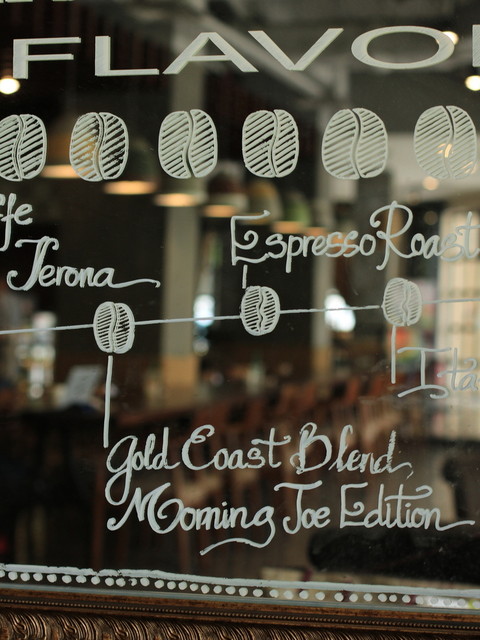 FLAVO
ffe
Terona
Espresso Roast
Ita
Gold Coast Blend,
Morning Joe Edition